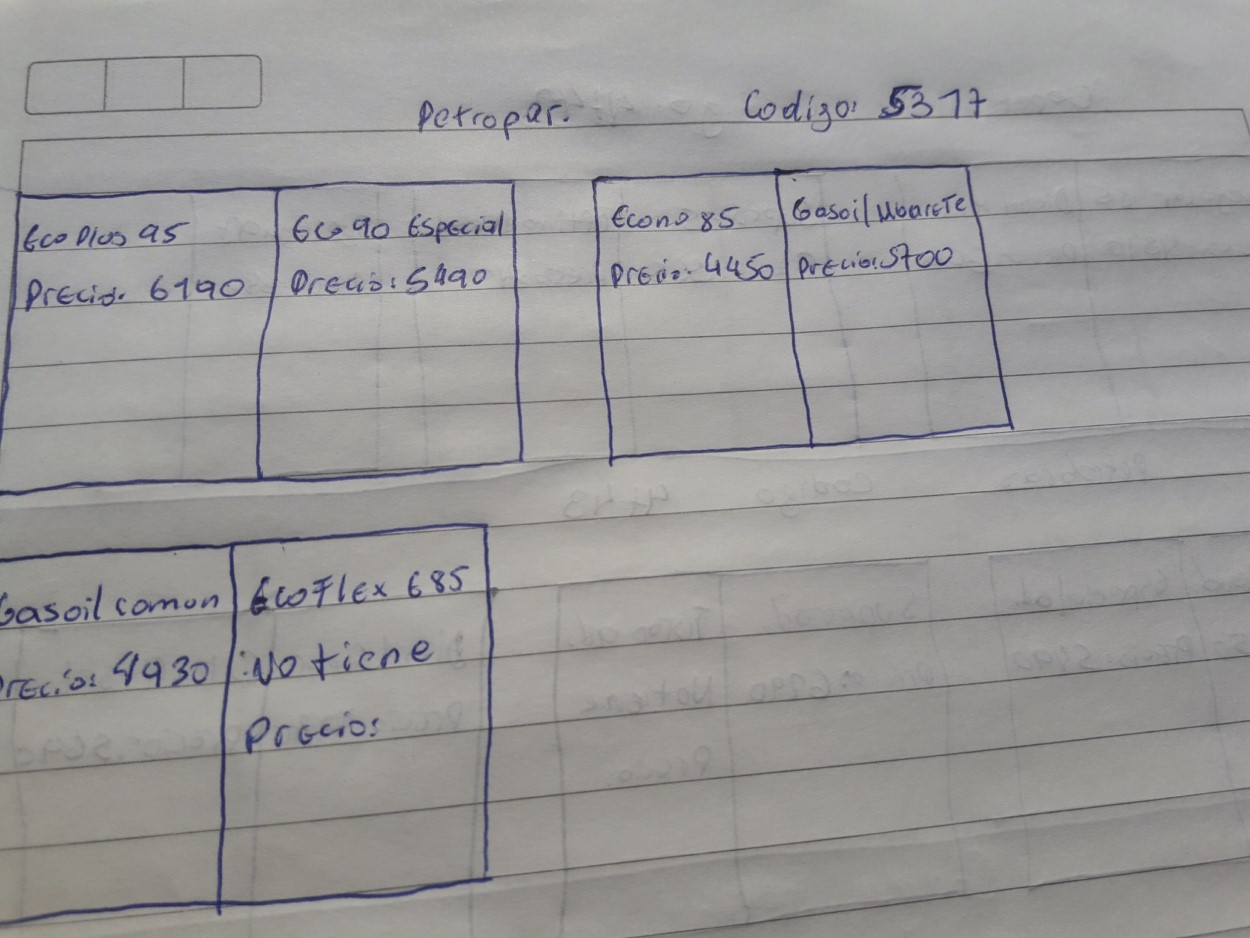 Petropar. Codigo: 5317
Eco Plus 95
Precio. 6190
Eco 90 Especial
Precio: 5490
Econo 85
Precio. 4450
Gasoil Mbarete
Precio: 5700
Gasoil comun
Precio: 4930
EcoFlex E85
No tiene
Precio: